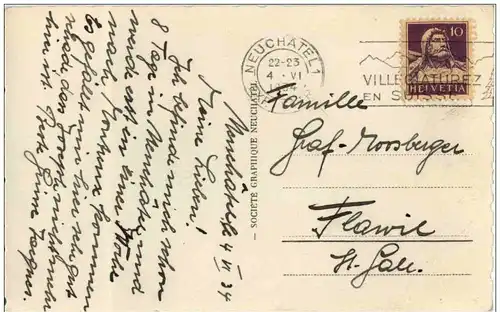 Neuchâtel, 4 VI 34
Meine Lieben!
Ich befinde mich schon
8 Tage in Neuchâtel und
werde erst in einer Woche
nach kommen
Es gefällt mir hier sehr gut
nicht mehr
hier ist.
NEUCHATEL 1
22-23
4. VI
VILLEGIATUREZ
EN SUISSE
10
HELVETIA
Familie
Graf-Moosberger
Flawil
St. Gall.
— SOCIÉTÉ GRAPHIQUE NEUCHATEL